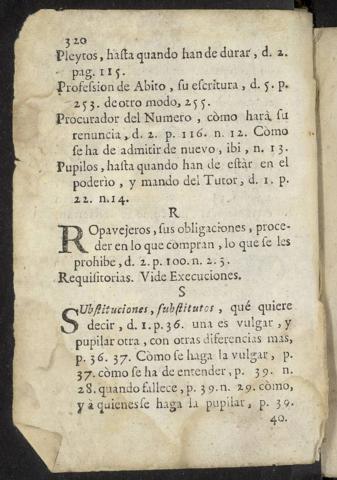 320
Pleytos, hasta quando han de durar, d. 2.
pag. 115.
Profession de Abito, su escritura, d. 5. p.
253. de otro modo, 255.
Procurador del Numero, còmo harà su
renuncia, d. 2. p. 116. n. 12. Còmo
se ha de admitir de nuevo, ibi, n. 13.
Pupilos, hasta quando han de estàr en el
poderìo, y mando del Tutor, d. 1. p.
22. n. 14.
R
Ropavejeros, sus obligaciones, proce-
der en lo que compran, lo que se les
prohibe, d. 2. p. 100. n. 2. 3.
Requisitorias. Vide Execuciones.
S
SUbstituciones, substitutos, què quiere
decir, d. 1. p. 36. una es vulgar, y
pupilar otra, con otras diferencias mas,
p. 36. 37. Còmo se haga la vulgar, p.
37. còmo se ha de entender, p. 39. n.
28. quando fallece, p. 39. n. 29. còmo,
y à quienes se haga la pupilar, p. 39.
40.